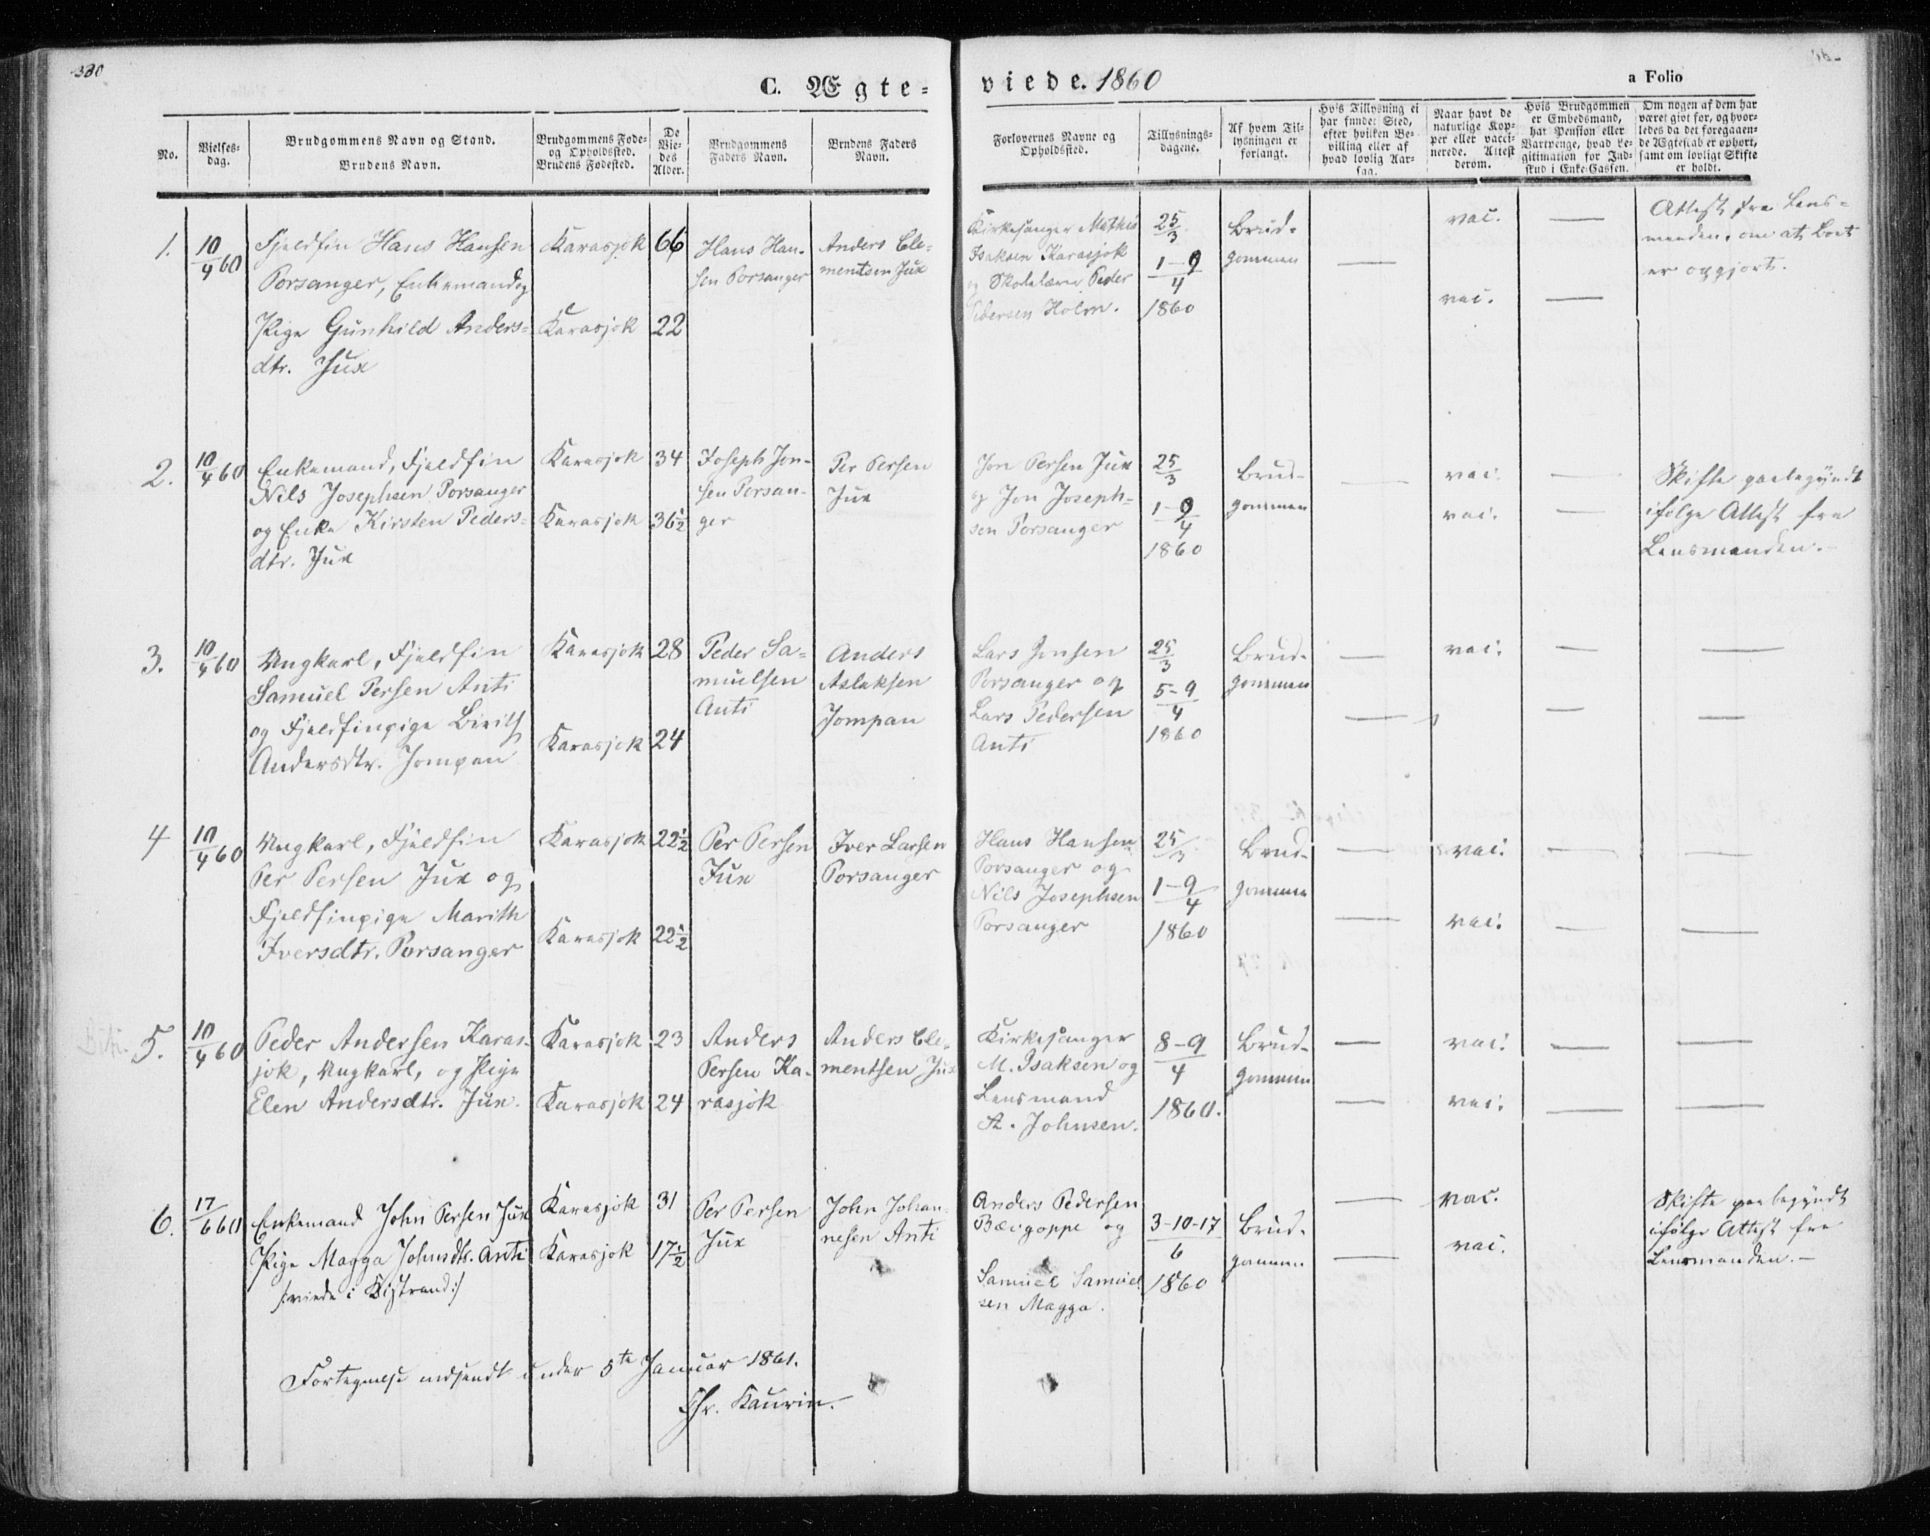 330
C. Ægte=
viede. 1860
a Folio
No.
Vielses-
dag.
Brudgommens Navn og Stand.
Brudens Navn.
Brudgommens Føde-
og Opholdssted.
Brudens Fødested.
De
Vie-
des
Alder.
Brudgommens
Faders Navn.
Brudens Faders
Navn.
Forlovernes Navne og
Opholdssted.
Tillysnings-
dagene.
Af hvem Til-
lysningen er
forlangt.
Hvis Tillysning ei
har fundet Sted,
efter hvilken Be-
villing eller af
hvad lovlig Aar-
sag.
Naar havt de
naturlige Kop-
per eller vacci-
nerede. Attest
derom.
Hvis Brudgommen
er Embedsmand,
har Pension eller
Vartpenge, hvad Le-
gitimation for Ind-
skud i Enke-Cassen.
Om nogen af dem har
været givt før, og hvor-
ledes da det foregaaen-
de Ægteskab er ophørt,
samt om lovligt Skifte
er holdt.
1.
10/4 60
Fjeldfin Hans Hansen
Porsanger, Enkemand og
Pige Gunhild Anders-
dtr. Jux
Karasjok 66
Karasjok 22
Hans Han-
sen Porsanger
Anders Cle-
mentsen Jux
Kirkesanger Mathis
Isaksen Karasjok
og Skolelærer Peder
Holm.
25/3
1-9/4
1860
Brud-
gommen
vac.
vac.
Attest fra Lens-
manden, om at Boet
er opgjort.
2.
10/4 60
Enkemand, Fjeldfin
Nils Josephsen Porsanger
og Enke Kirsten Peders-
dtr. Jux
Karasjok 34
Karasjok 36½
Joseph Jon-
sen Porsan-
ger
Per Persen
Jux
Jon Persen Jux
og Jon Joseph-
sen Porsanger
25/3
1-9/4
1860
Brud-
gommen
vac.
vac.
Skifte paabegyndt
ifølge Attest fra
Lensmanden.-
3.
10/4 60
Ungkarl, Fjeldfin
Samuel Persen Anti
og Fjeldfinpige Birith
Andersdtr. Jompan
Karasjok 28
Karasjok 24
Peder Sa-
muelsen
Anti
Anders
Aslaksen
Jompan
Lars Jonsen
Porsanger og
Lars Pedersen
Anti
25/3
5-9/4
1860
Brud-
gommen
vac.
4
10/4 60
Ungkarl, Fjeldfin
Per Persen Jux og
Fjeldfinpige Marith
Iversdtr. Porsanger
Karasjok 22½
Karasjok 22½
Per Persen
Jux
Iver Larsen
Porsanger
Hans Hansen
Porsanger og
Nils Josephsen
Porsanger
25/3
1-9/4
1860
Brud-
gommen
vac.
vac.
5.
10/4 60
Peder Andersen Karas-
jok, Ungkarl, og Pige
Elen Andersdtr. Jux.
Karasjok 23
Karasjok 24
Anders
Persen Ka-
rasjok
Anders Cle-
mentsen Jux
Kirkesanger
M. Isaksen og
Lensmand
A. Johnsen.
8-9/4
1860.
Brud-
gommen
vac.
vac.
6.
17/6 60
Enkemand John Persen Jux
Pige Magga Johnsdtr. Anti
/:viede i Kistrand:/
Karasjok 31
Karasjok 17½
Per Persen
Jux
John Johan-
nesen Anti
Anders Pedersen
Bævgoppe og
Samuel Samuel-
sen Magga.
3-10-17/6
1860
Brud-
gommen
vac.
vac.
Skifte paabegyndt
ifølge Attest fra
Lensmanden.-
Fortegnelse indsendt under 5te Januar 1861.
Chr. Kaurin.